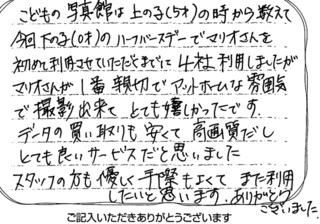 こどもの写真館は上の子(5才)の時から数えて
今回下の子(0才)のハーフバースデーでマリオさんを
初めて利用させていただくまでに4社利用しましたが
マリオさんが1番親切でアットホームな雰囲気
で撮影出来てとても嬉しかったです。
データの買い取りも安くて高画質だし
とても良いサービスだと思いました
スタッフの方も優しく手際もよくてまた利用
したいと思います。ありがとう
ございました
ご記入いただきありがとうございます